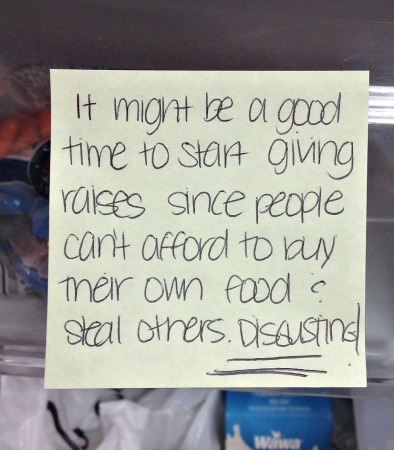 It might be a good
time to start giving
raises since people
can't afford to buy
their own food &
steal others. Disgusting!
Wawa